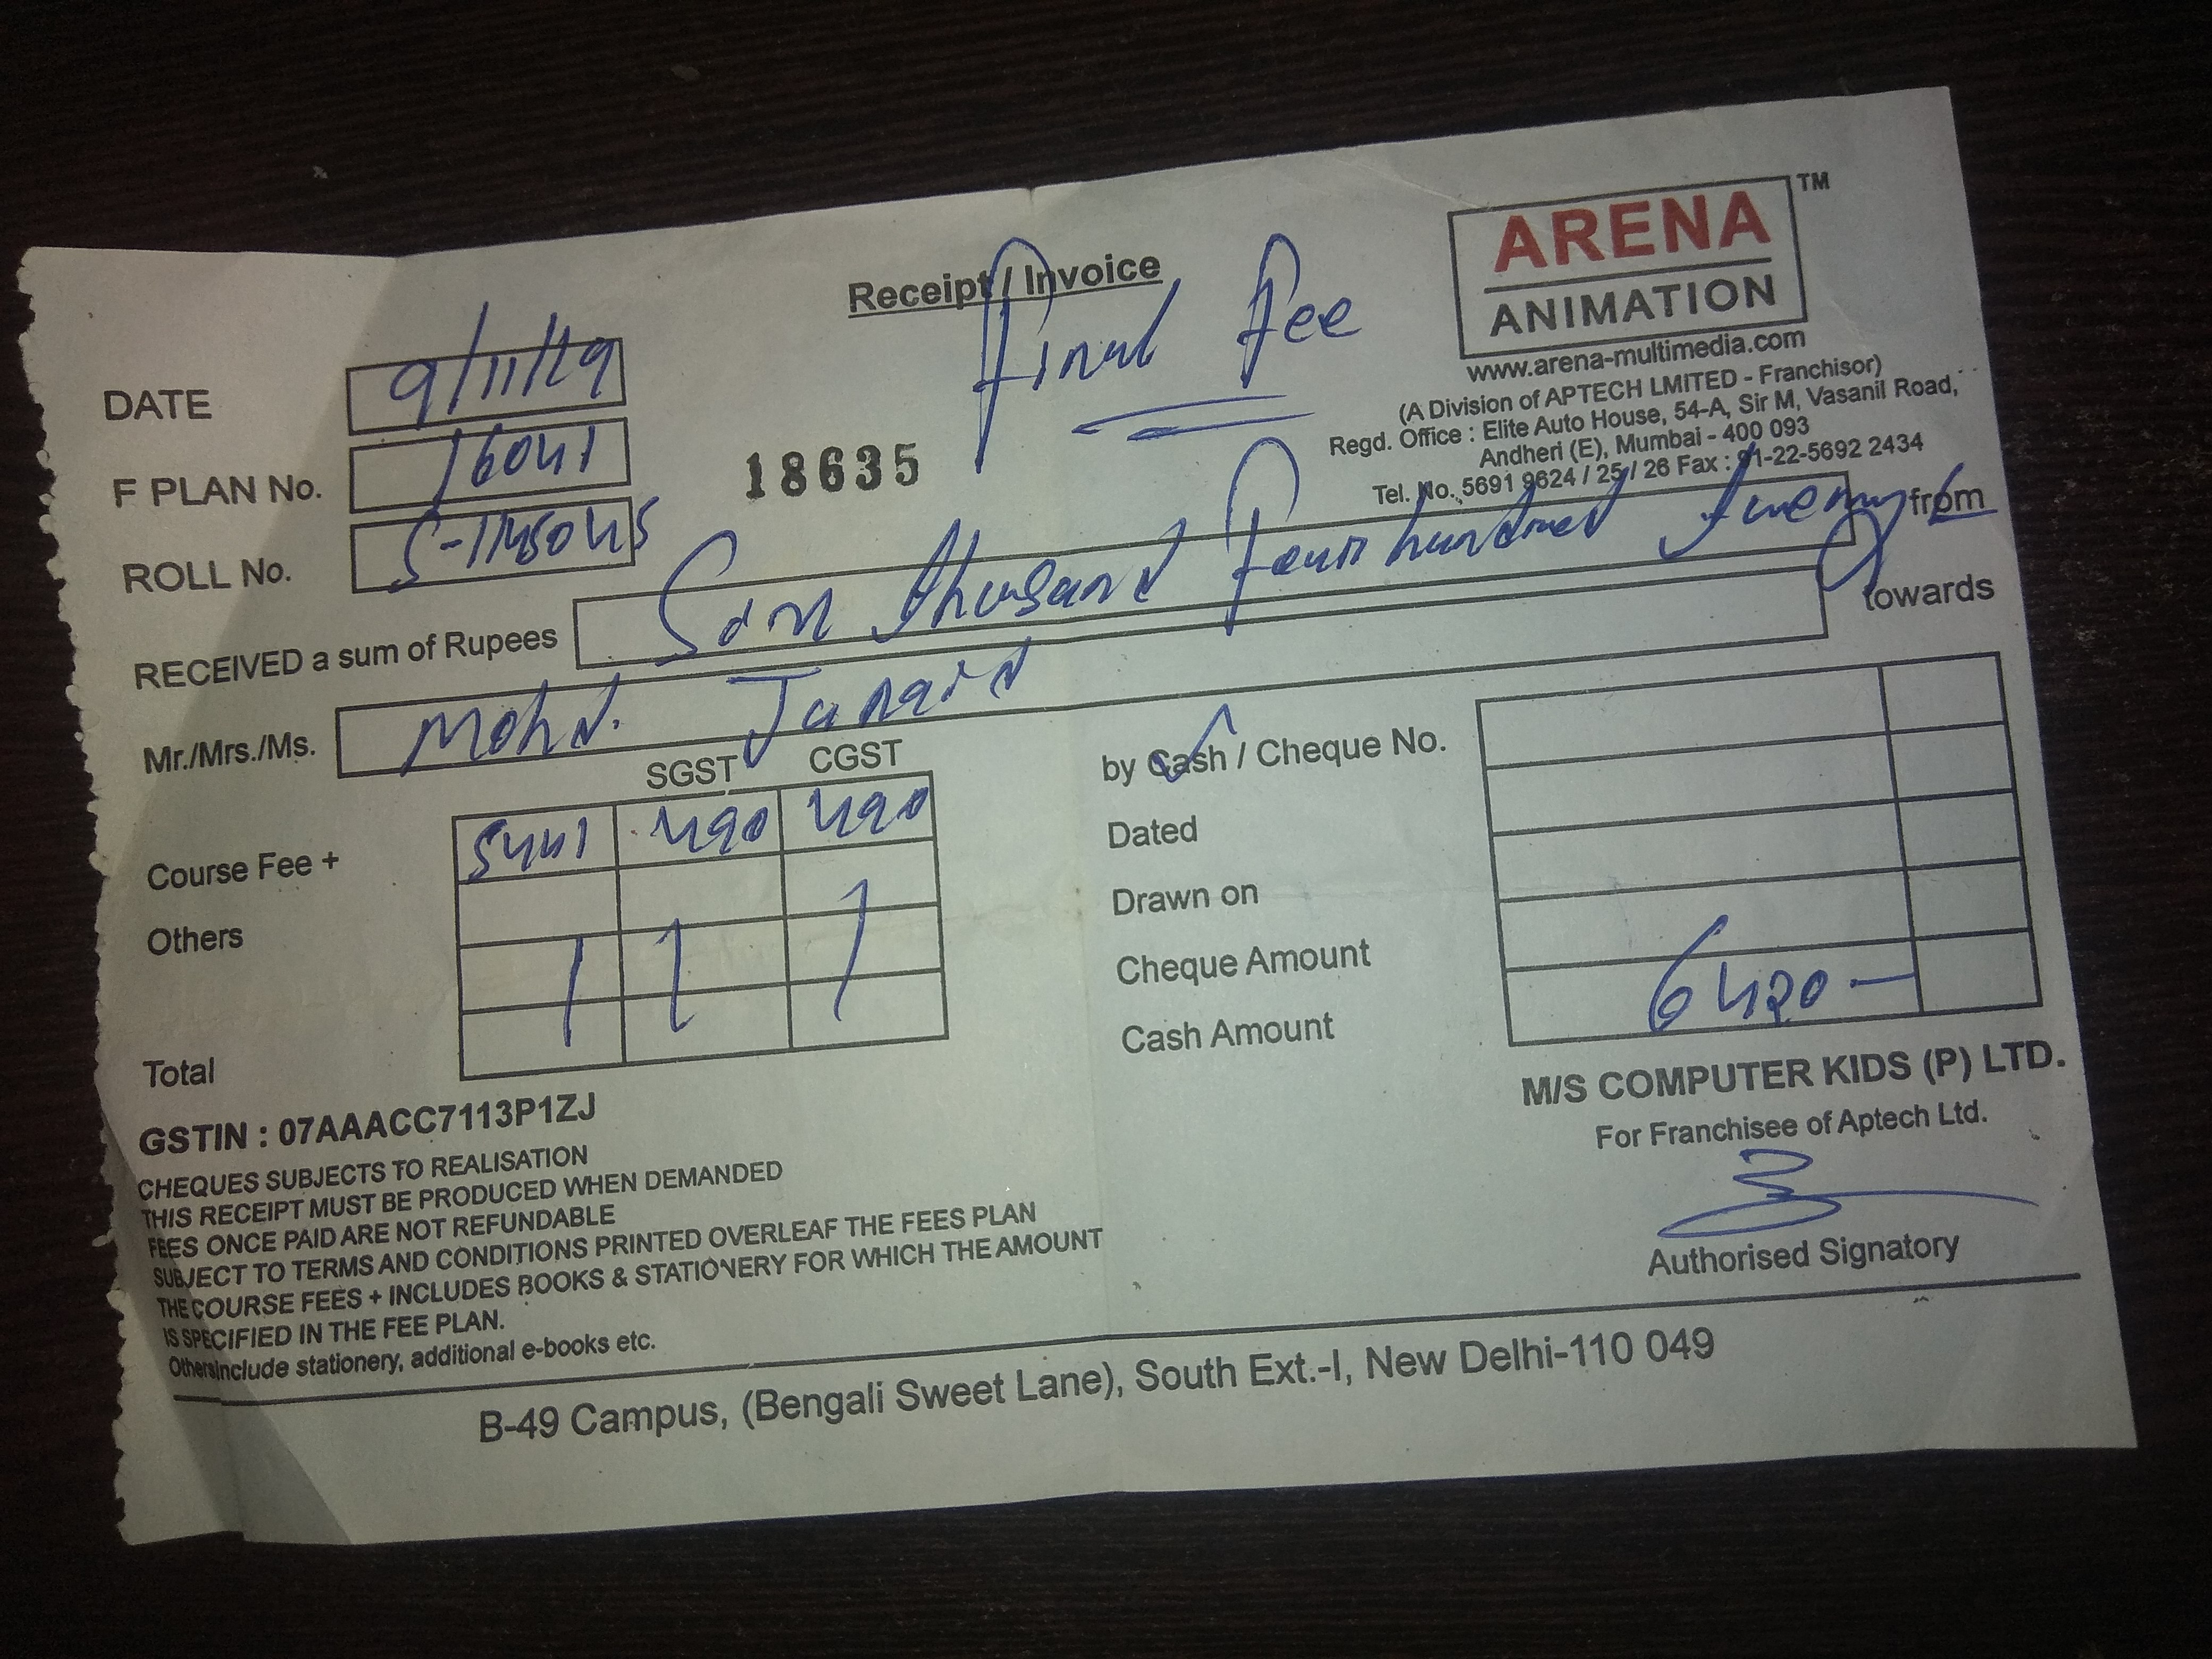 Receipt / Invoice
Final Fee
ARENA TM
ANIMATION
www.arena-multimedia.com
(A Division of APTECH LMITED - Franchisor)
Regd. Office : Elite Auto House, 54-A, Sir M, Vasanil Road,
Andheri (E), Mumbai - 400 093
Tel. No. 5691 9624 / 25 / 26 Fax : 91-22-5692 2434
DATE 9/11/19
F PLAN No. 16041
18635
ROLL No.
RECEIVED a sum of Rupees thusand Four hundred from
towards
Mr./Mrs./Ms. Mohd. Junaid
SGST CGST
Course Fee + 5441 490 490
Others
Total
by Cash / Cheque No.
Dated
Drawn on
Cheque Amount
Cash Amount 6420 —
GSTIN : 07AAACC7113P1ZJ
CHEQUES SUBJECTS TO REALISATION
THIS RECEIPT MUST BE PRODUCED WHEN DEMANDED
FEES ONCE PAID ARE NOT REFUNDABLE
SUBJECT TO TERMS AND CONDITIONS PRINTED OVERLEAF THE FEES PLAN
THE COURSE FEES + INCLUDES BOOKS & STATIONERY FOR WHICH THE AMOUNT
IS SPECIFIED IN THE FEE PLAN.
Others include stationery, additional e-books etc.
M/S COMPUTER KIDS (P) LTD.
For Franchisee of Aptech Ltd.
Authorised Signatory
B-49 Campus, (Bengali Sweet Lane), South Ext.-I, New Delhi-110 049